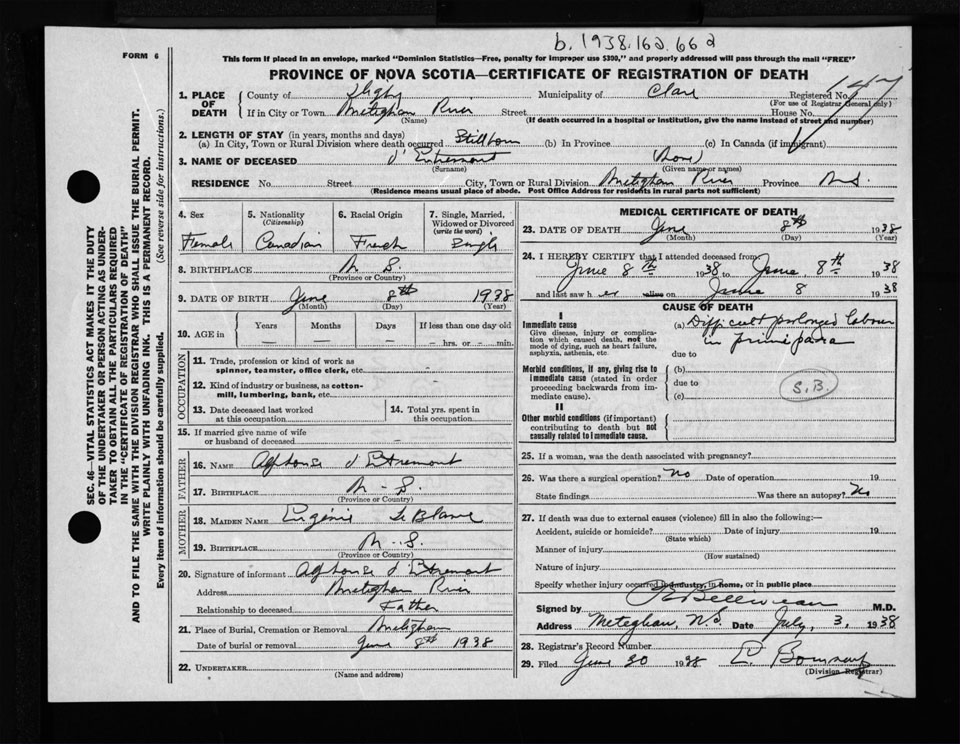 b. 1938.162.662
FORM 6
This form if placed in an envelope, marked "Dominion Statistics—Free, penalty for improper use $300," and properly addressed will pass through the mail "FREE"
PROVINCE OF NOVA SCOTIA—CERTIFICATE OF REGISTRATION OF DEATH
SEC. 46—VITAL STATISTICS ACT MAKES IT THE DUTY
OF THE UNDERTAKER OR PERSON ACTING AS UNDER-
TAKER TO OBTAIN ALL THE PARTICULARS REQUIRED
IN THE "CERTIFICATE OF REGISTRATION OF DEATH"
AND TO FILE THE SAME WITH THE DIVISION REGISTRAR WHO SHALL ISSUE THE BURIAL PERMIT.
WRITE PLAINLY WITH UNFADING INK. THIS IS A PERMANENT RECORD.
Every item of information should be carefully supplied. (See reverse side for instructions.)
1. PLACE OF DEATH County of Digby Municipality of Clare Registered No.
(For use of Registrar General only)
If in City or Town Meteghan River Street House No.
(Name) (If death occurred in a hospital or institution, give the name instead of street and number)
2. LENGTH OF STAY (in years, months and days)
(a) In City, Town or Rural Division where death occurred Stillborn (b) In Province (c) In Canada (if immigrant)
3. NAME OF DECEASED d'Entremont (None)
(Surname) (Given name or names)
RESIDENCE No. Street City, Town or Rural Division Meteghan River Province N.S.
(Residence means usual place of abode. Post Office Address for residents in rural parts not sufficient)
4. Sex
Female
5. Nationality
(Citizenship)
Canadian
6. Racial Origin
French
7. Single, Married,
Widowed or Divorced
(write the word)
Single
8. BIRTHPLACE N.S.
(Province or Country)
9. DATE OF BIRTH June 8th 1938
(Month) (Day) (Year)
10. AGE in Years Months Days If less than one day old
— — — — hrs. or — min.
OCCUPATION
11. Trade, profession or kind of work as
spinner, teamster, office clerk, etc.
12. Kind of industry or business, as cotton-
mill, lumbering, bank, etc.
13. Date deceased last worked
at this occupation
14. Total yrs. spent in
this occupation
15. If married give name of wife
or husband of deceased —
FATHER
16. NAME Alphonse d'Entremont
17. BIRTHPLACE N.S.
(Province or Country)
MOTHER
18. MAIDEN NAME Eugénie LeBlanc
19. BIRTHPLACE N.S.
(Province or Country)
20. Signature of informant Alphonse d'Entremont
Address Meteghan River
Relationship to deceased Father
21. Place of Burial, Cremation or Removal Meteghan
Date of burial or removal June 8th 1938
22. UNDERTAKER
(Name and address)
MEDICAL CERTIFICATE OF DEATH
23. DATE OF DEATH June 8th 1938
(Month) (Day) (Year)
24. I HEREBY CERTIFY that I attended deceased from
June 8th 1938 to June 8th 1938
and last saw her alive on June 8 1938
CAUSE OF DEATH
I
Immediate cause
Give disease, injury or complica-
tion which caused death, not the
mode of dying, such as heart failure,
asphyxia, asthenia, etc.
(a) Difficult prolonged labour
in primipara
due to
Morbid conditions, if any, giving rise to
immediate cause (stated in order
proceeding backwards from im-
mediate cause).
(b)
due to
(c)
S.B.
II
Other morbid conditions (if important)
contributing to death but not
causally related to immediate cause.
25. If a woman, was the death associated with pregnancy?
26. Was there a surgical operation? No Date of operation 19
State findings Was there an autopsy? No
27. If death was due to external causes (violence) fill in also the following:—
Accident, suicide or homicide? Date of injury 19
(State which)
Manner of injury
(How sustained)
Nature of injury
Specify whether injury occurred in industry, in home, or in public place
Signed by Belliveau M.D.
Address Meteghan, N.S. Date July, 3, 1938
28. Registrar's Record Number
29. Filed June 30 1938
(Division Registrar)